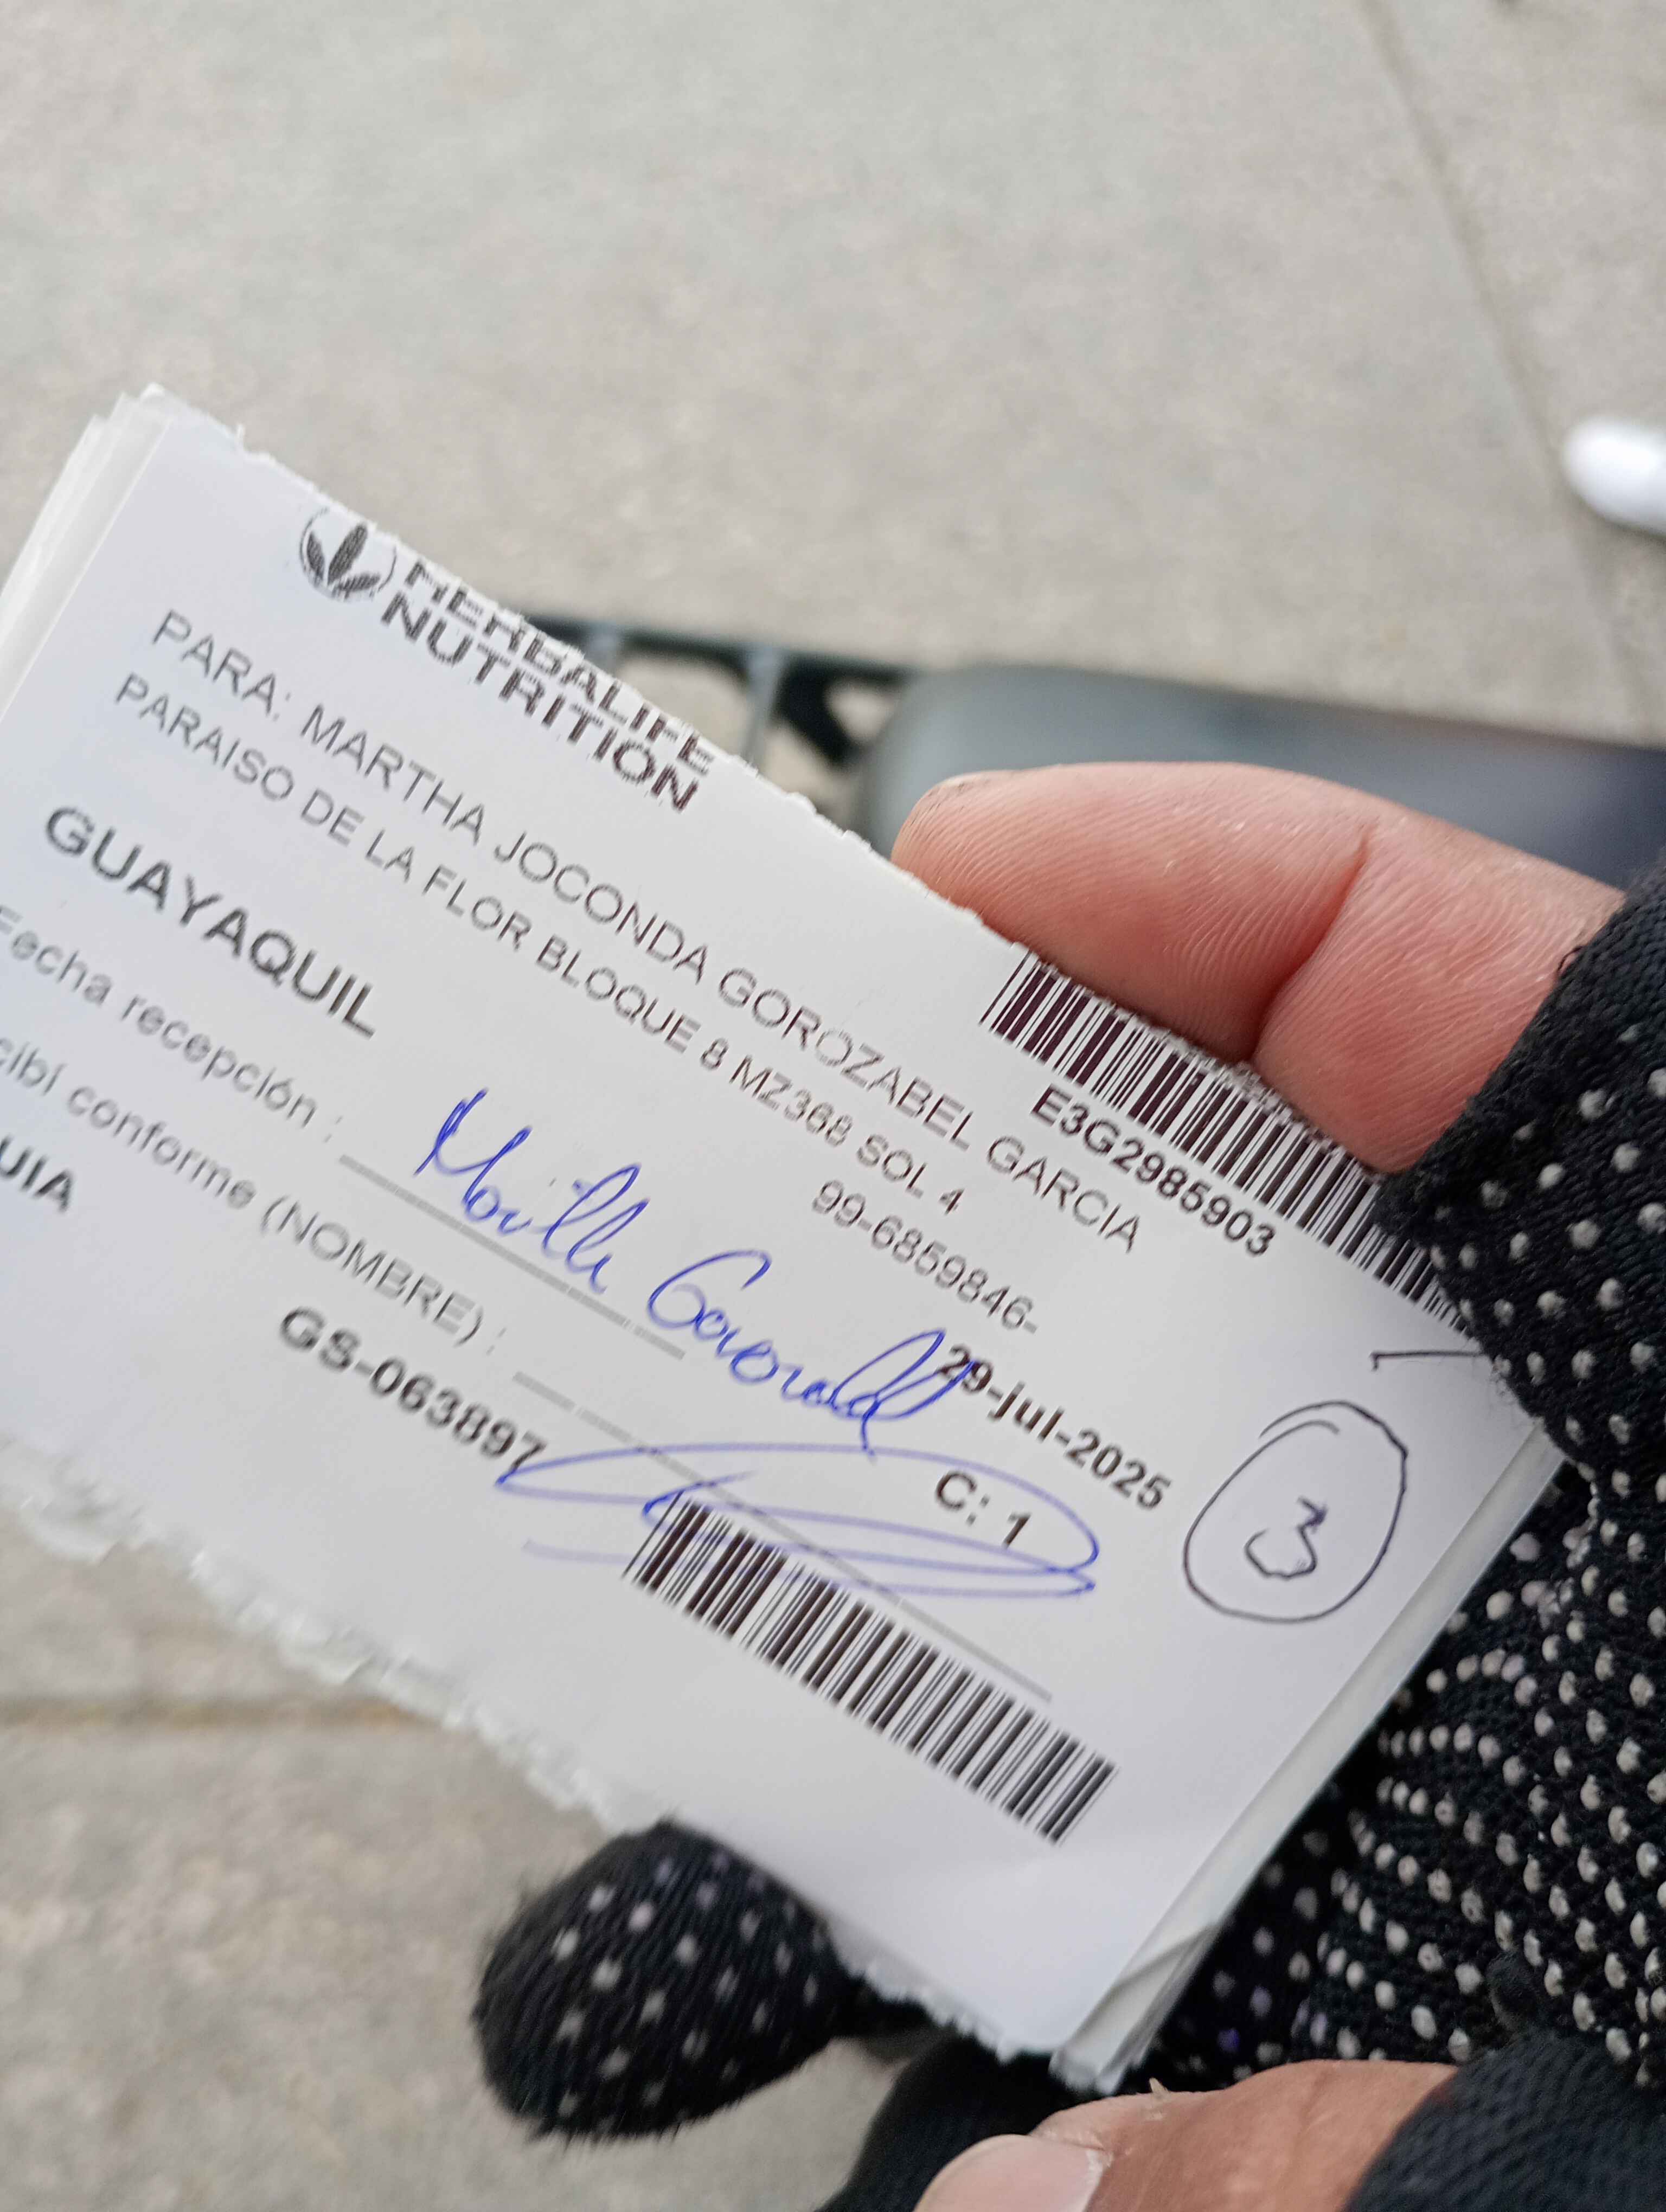 HERBALIFE
NUTRITION
E3G2985903
PARA: MARTHA JOCONDA GOROZABEL GARCIA
PARAISO DE LA FLOR BLOQUE 8 MZ368 SOL 4
99-6859846-
GUAYAQUIL
29-jul-2025
Fecha recepción :
cibí conforme (NOMBRE) :
C: 1
3
UIA
GS-063897